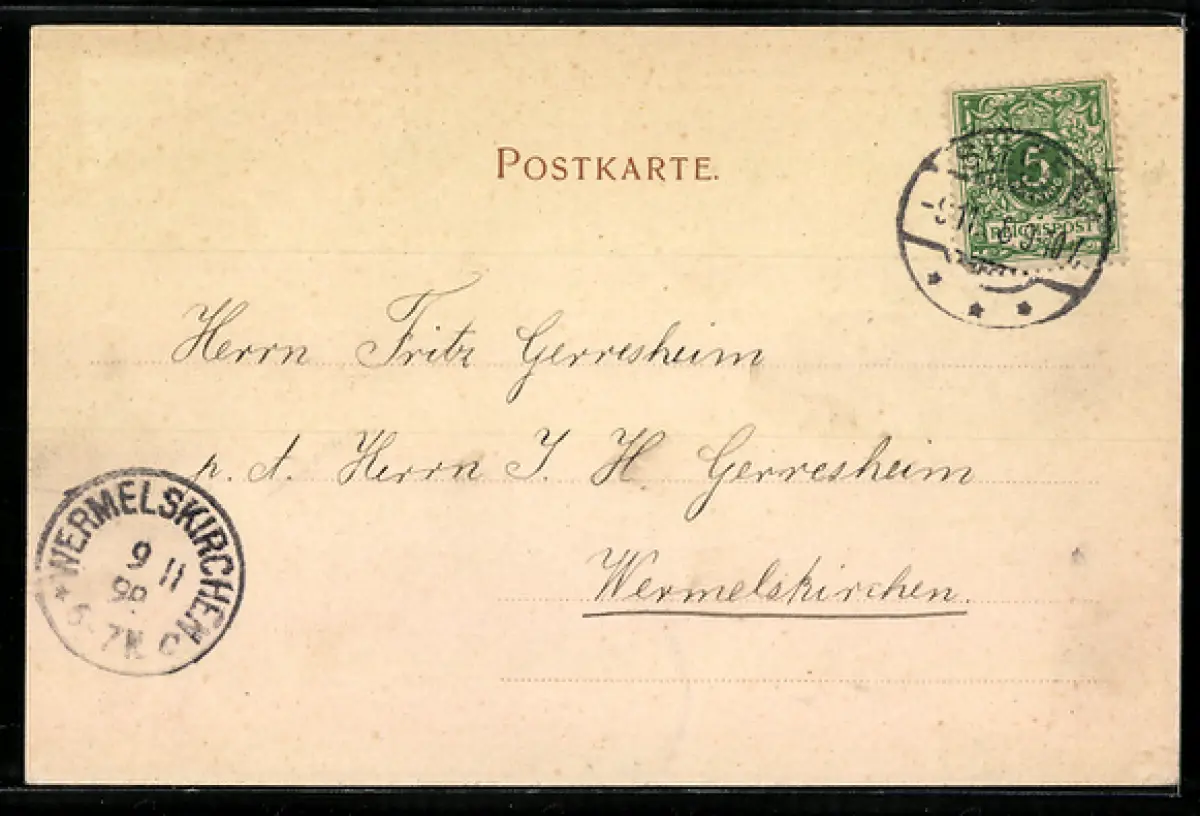 POSTKARTE.
5
REICHSPOST
Herrn Fritz Gerresheim
p. A. Herrn J H Gerresheim
Wermelskirchen.
WERMELSKIRCHEN
9 11
98
5-7N